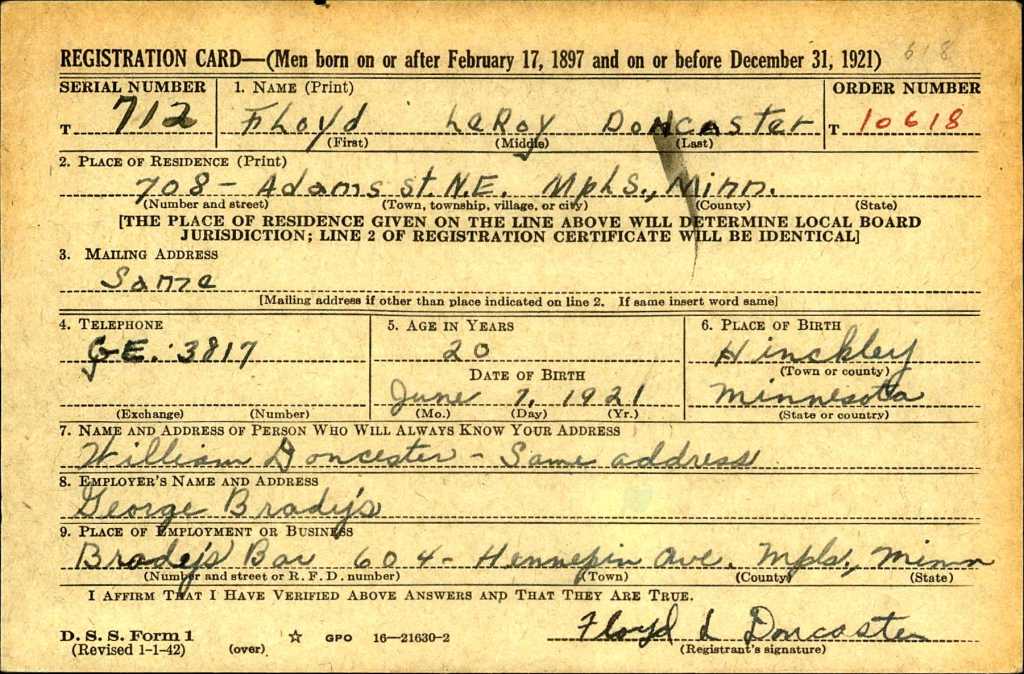 618
REGISTRATION CARD—(Men born on or after February 17, 1897 and on or before December 31, 1921)
SERIAL NUMBER 1. NAME (Print) ORDER NUMBER
T 712 Floyd LeRoy Doncaster T 10618
(First) (Middle) (Last)
2. PLACE OF RESIDENCE (Print)
708 - Adams st. N.E. Mpls., Minn.
(Number and street) (Town, township, village, or city) (County) (State)
[THE PLACE OF RESIDENCE GIVEN ON THE LINE ABOVE WILL DETERMINE LOCAL BOARD
JURISDICTION; LINE 2 OF REGISTRATION CERTIFICATE WILL BE IDENTICAL]
3. MAILING ADDRESS
Same
[Mailing address if other than place indicated on line 2. If same insert word same]
4. TELEPHONE 5. AGE IN YEARS 6. PLACE OF BIRTH
GE. 3817 20 Hinckley
(Town or county)
DATE OF BIRTH
June 7, 1921 Minnesota
(Exchange) (Number) (Mo.) (Day) (Yr.) (State or country)
7. NAME AND ADDRESS OF PERSON WHO WILL ALWAYS KNOW YOUR ADDRESS
William Doncester - Same address
8. EMPLOYER'S NAME AND ADDRESS
George Brady's
9. PLACE OF EMPLOYMENT OR BUSINESS
Brady's Bar 604 - Hennepin Ave. Mpls., Minn
(Number and street or R. F. D. number) (Town) (County) (State)
I AFFIRM THAT I HAVE VERIFIED ABOVE ANSWERS AND THAT THEY ARE TRUE.
Floyd L Doncaster
D. S. S. Form 1 ☆ GPO 16—21630-2
(Revised 1-1-42) (over) (Registrant's signature)